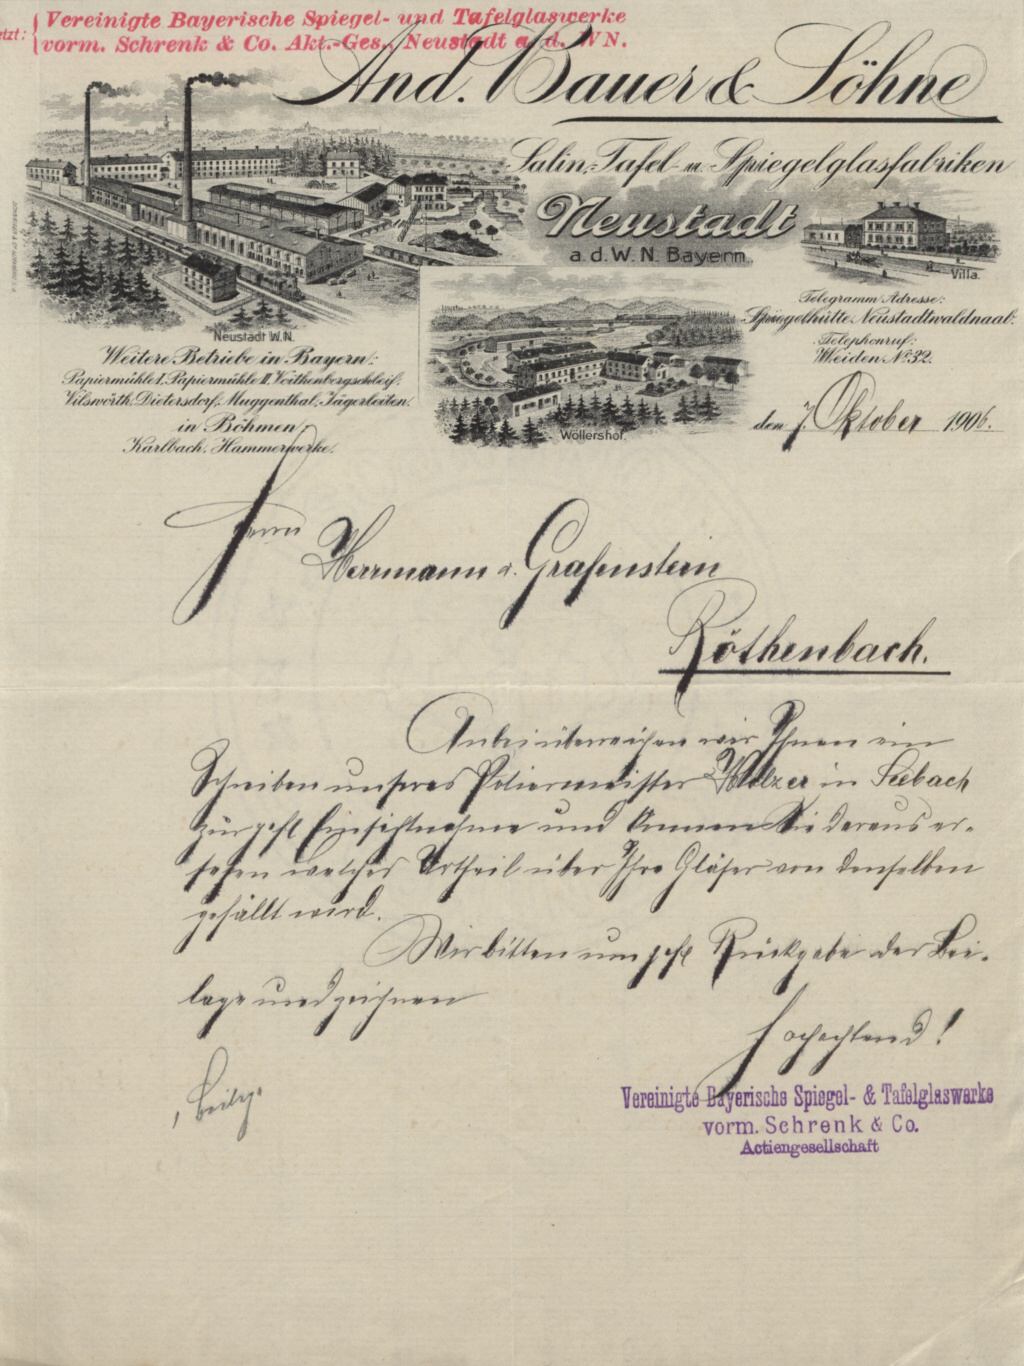 etzt: Vereinigte Bayerische Spiegel- und Tafelglaswerke
vorm. Schrenk & Co. Akt.-Ges., Neustadt a. d. WN.
And. Bauer & Söhne
Salin-, Tafel- u. Spiegelglasfabriken
Neustadt
a. d. W. N. Bayern.
Villa.
Neustadt W.N.
Telegramm-Adresse:
Spiegelhütte Neustadtwaldnaab.
Telephonruf:
Weiden No. 32.
Weitere Betriebe in Bayern:
Papiermühle I, Papiermühle II, Veithenbergschleif,
Vilswörth, Dietersdorf, Muggenthal, Jägerleiten,
in Böhmen,
Karlbach, Hammerwerke.
Wöllershof.
den 7. Oktober 1906.
Herrn
Herrmann v. Grafenstein
Röthenbach.
Anbei überreichen wir Ihnen ein
Schreiben unseres Poliermeister Holzer in Seebach
zur gefl Einsichtnahme und können Sie daraus er-
sehen welches Urtheil über Ihre Gläser von denselben
gefällt wird.
Wir bitten um gefl Rückgabe der Bei-
lage und zeichnen
Hochachtend!
Vereinigte Bayerische Spiegel- & Tafelglaswerke
vorm. Schrenk & Co.
Actiengesellschaft
1 Beilg.